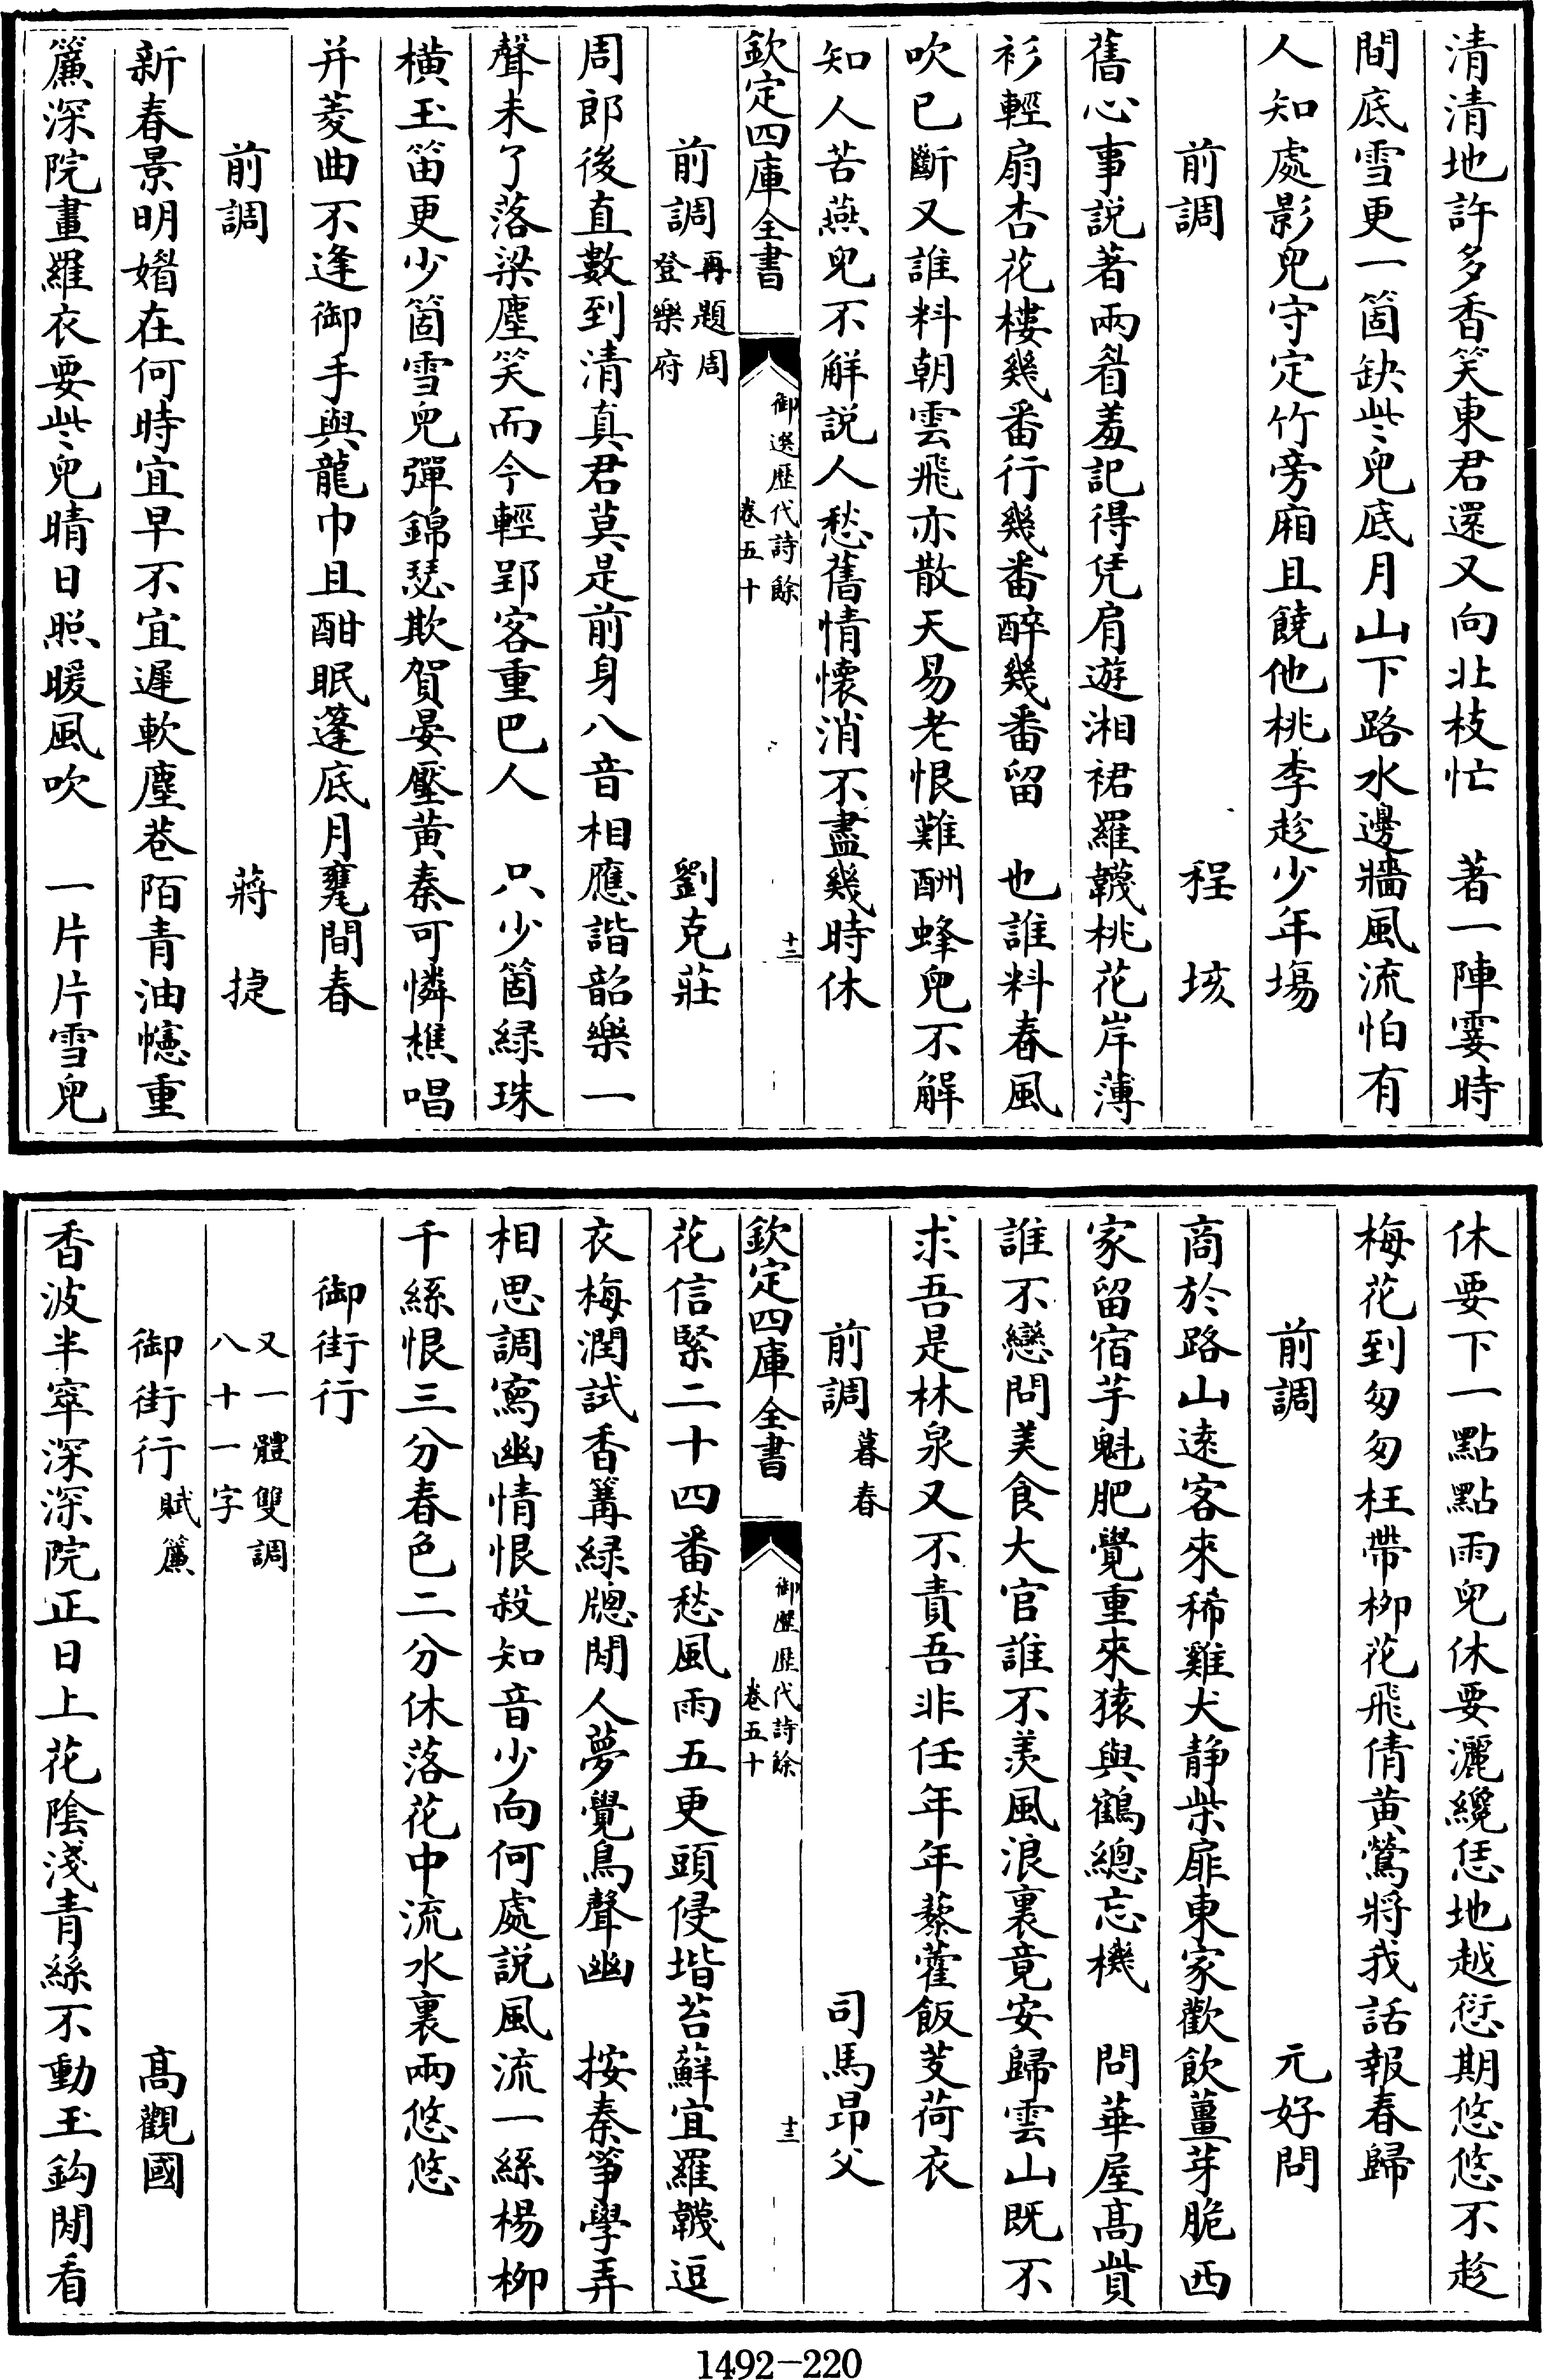 清清地許多香笑東君還又向北枝忙　著一陣霎時
間底雪更一箇缺些兒底月山下路水邊牆風流怕有
人知處影兒守定竹旁廂且饒他桃李趁少年場
前調　程垓
舊心事説著兩眉羞記得凭肩遊湘裙羅韈桃花岸薄
衫輕扇杏花樓幾番行幾番醉幾番留　也誰料春風
吹已斷又誰料朝雲飛亦散天易老恨難酬蜂兒不解
知人苦燕兒不解説人愁舊情懷消不盡幾時休
欽定四庫全書　御選歷代詩餘卷五十　十二
前調再題周登樂府　劉克莊
周郎後直數到清真君莫是前身八音相應諧韶樂一
聲未了落梁塵笑而今輕郢客重巴人　只少箇緑珠
橫玉笛更少箇雪兒彈錦瑟欺賀晏壓黄秦可憐樵唱
并菱曲不逢御手與龍巾且酣眠蓬底月甕間春
前調　蔣捷
新春景明媚在何時宜早不宜遲軟塵巷陌青油幰重
簾深院畫羅衣要些兒晴日照暖風吹　一片片雪兒
休要下一點點雨兒休要灑纔恁地越愆期悠悠不趁
梅花到匆匆枉帶柳花飛倩黄鶯將我話報春歸
前調　元好問
商於路山逺客來稀雞犬静柴扉東家歡飲薑芽脆西
家留宿芋魁肥覺重來猿與鶴總忘機　問華屋髙貲
誰不戀問美食大官誰不羡風浪裏竟安歸雲山既不
求吾是林泉又不責吾非任年年藜藿飯芰荷衣
前調暮春　司馬昂父
欽定四庫全書　御選歷代詩餘卷五十　十三
花信緊二十四番愁風雨五更頭侵堦苔蘚宜羅韈逗
衣梅潤試香篝緑牕閒人夢覺鳥聲幽　按秦筝學弄
相思調寫幽情恨殺知音少向何處説風流一絲楊柳
千絲恨三分春色二分休落花中流水裏兩悠悠
御街行
又一體雙調八十一字
御街行賦簾　髙觀國
香波半窣深深院正日上花陰淺青絲不動玉鈎閒看
1492-220